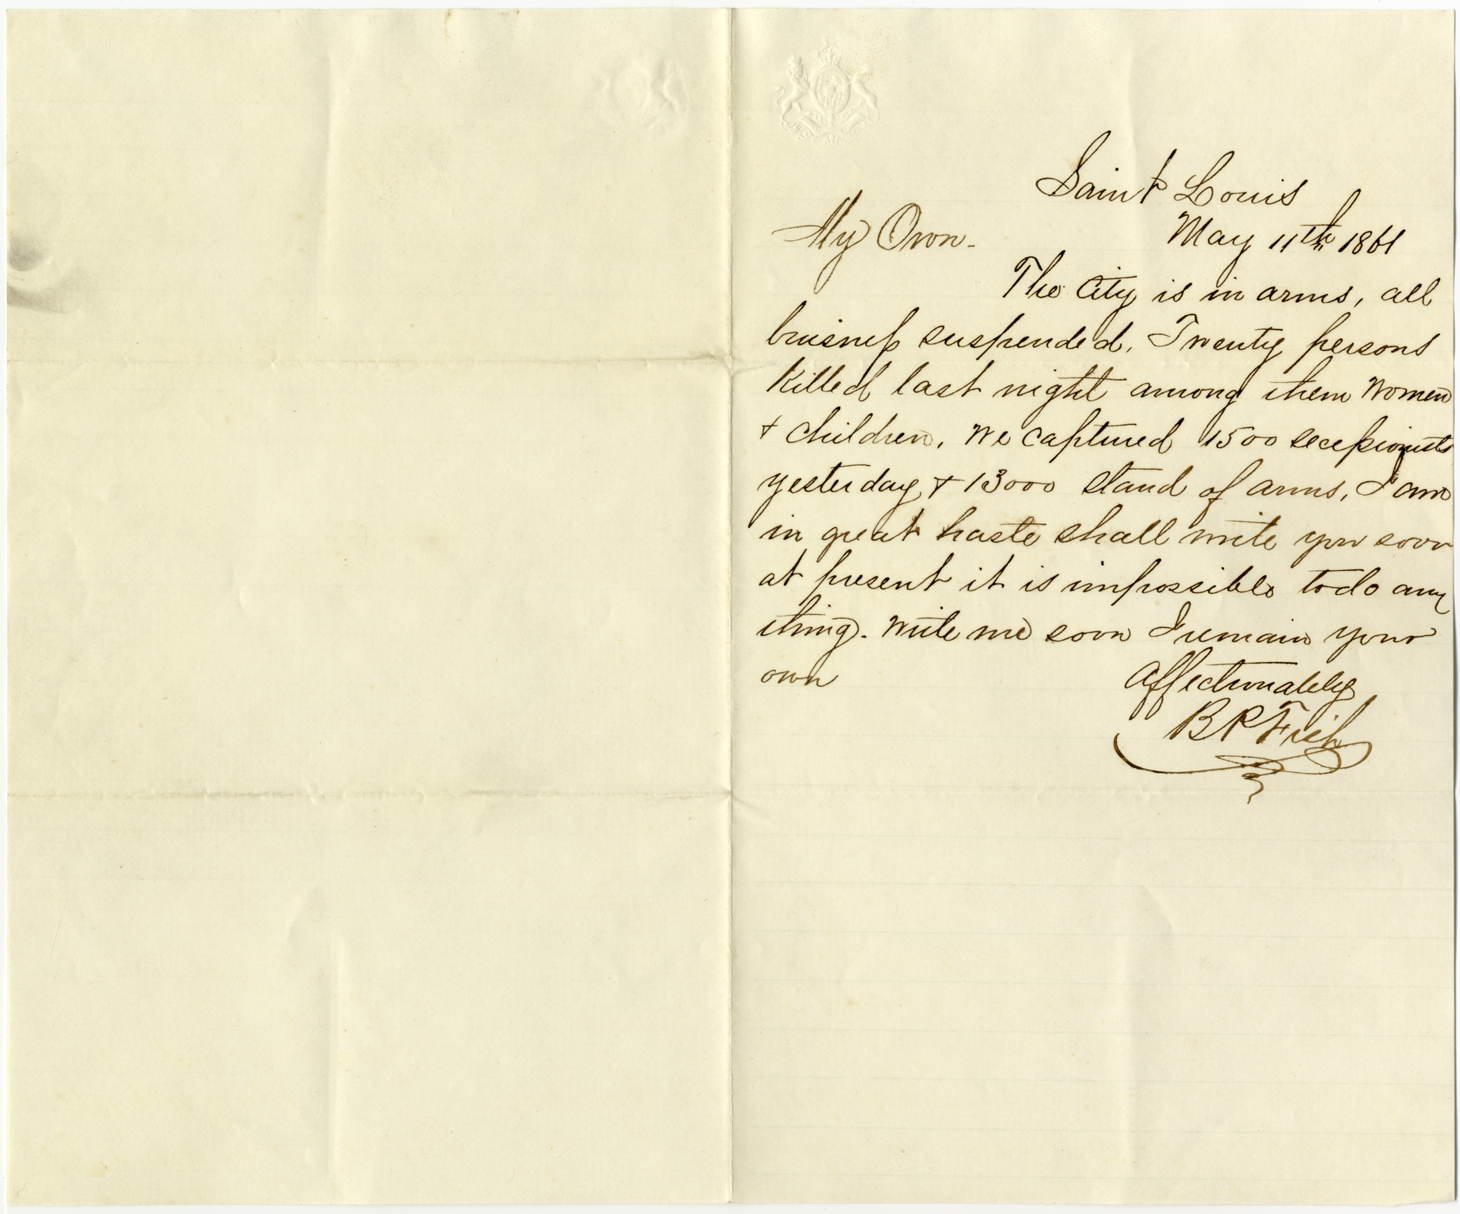 Saint Louis
May 11th 1861
My Own.
The City is in arms, all
buisness suspended. Twenty persons
killed last night among them women
& children. We captured 1500 secessionists
yesterday & 13000 stand of arms. I am
in great haste shall write you soon
at present it is impossible to do any
thing. Write me soon I remain your
own
Affectionately
B P Fish